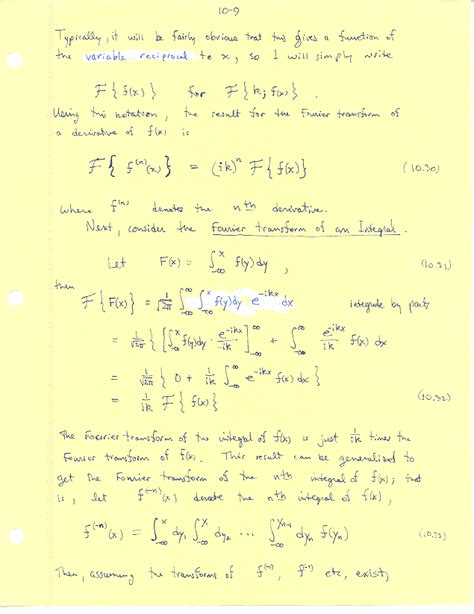 10-9
Typically, it will be fairly obvious that this gives a function of
the variable reciprocal to x, so I will simply write
F{ f(x) } for F{ k; f(x) }.
Using this notation, the result for the Fourier transform of
a derivative of f(x) is
F{ f^(n)(x) } = (ik)^n F{ f(x) } (10.30)
where f^(n) denotes the nth derivative.
Next, consider the Fourier transform of an Integral.
Let F(x) = ∫_{-∞}^x f(y) dy , (10.31)
then
F{ F(x) } = 1/√2π ∫_{-∞}^∞ ∫_{-∞}^x f(y) dy e^{-ikx} dx integrate by parts
= 1/√2π { [ ∫_{-∞}^x f(y) dy · e^{-ikx}/-ik ]_{-∞}^∞ + ∫_{-∞}^∞ e^{-ikx}/ik f(x) dx }
= 1/√2π { 0 + 1/ik ∫_{-∞}^∞ e^{-ikx} f(x) dx }
= 1/ik F{ f(x) } (10.32)
The Fourier transform of the integral of f(x) is just 1/ik times the
Fourier transform of f(x). This result can be generalized to
get the Fourier transform of the nth integral of f(x); that
is, let f^(-n)(x) denote the nth integral of f(x),
f^(-n)(x) = ∫_{-∞}^x dy₁ ∫_{-∞}^{y₁} dy₂ ... ∫_{-∞}^{y_{n-1}} dy_n f(y_n) (10.33)
Then, assuming the transforms of f^(-1), etc, exist,